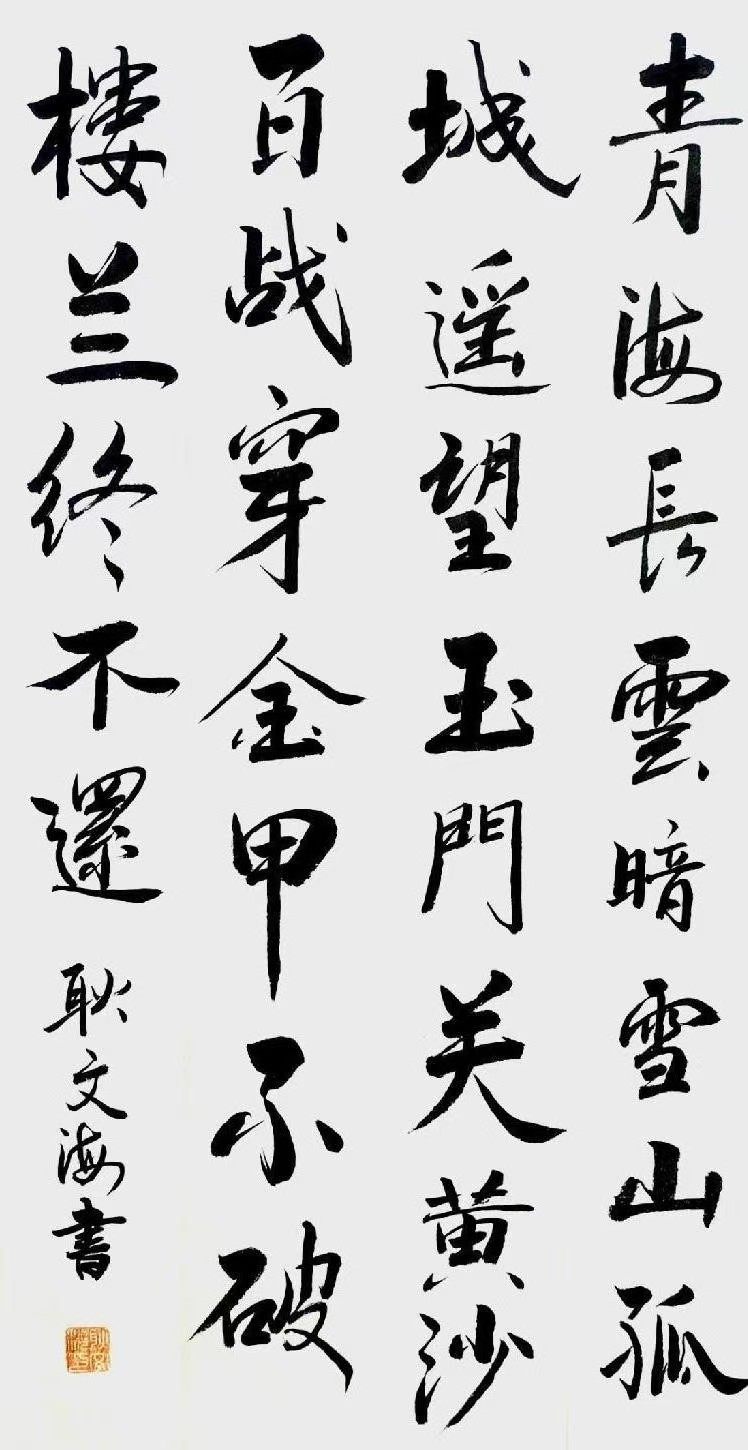 青海長雲暗雪山孤
城遥望玉門关黄沙
百战穿金甲不破
楼兰终不還 耿文海書